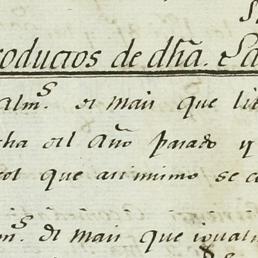 oductos de dħa. La
alm.s de mais que li
cha del Año pasado y
col que asimismo se c
m.s de mais que igual